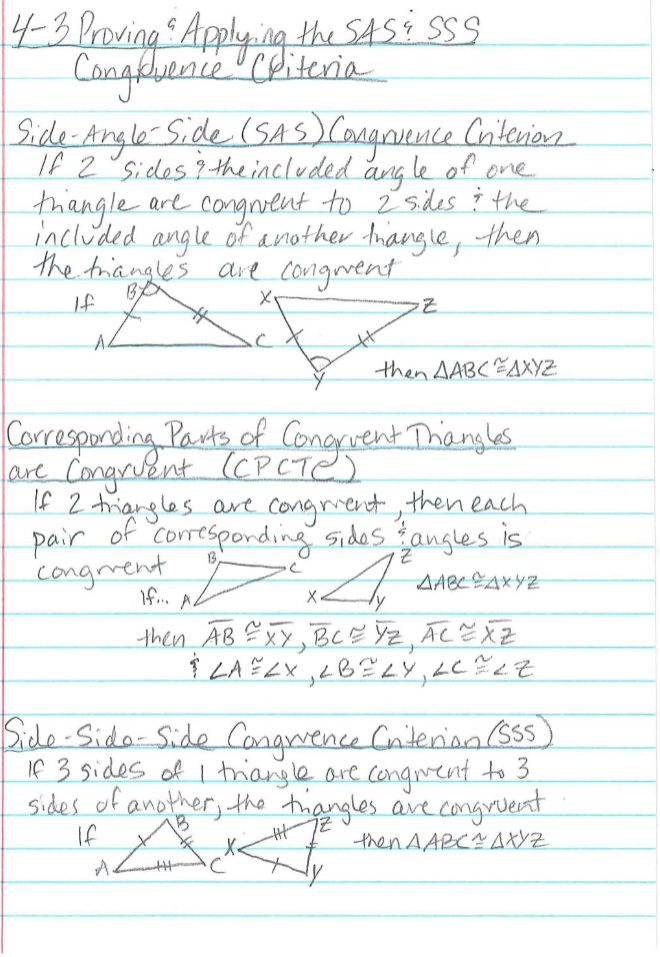 4-3 Proving & Applying the SAS & SSS
Congruence Criteria
Side-Angle-Side (SAS) Congruence Criterion
If 2 sides & the included angle of one
triangle are congruent to 2 sides & the
included angle of another triangle, then
the triangles are congruent
If
B
A
C
X
Z
Y
then △ABC ≅ △XYZ
Corresponding Parts of Congruent Triangles
are Congruent (CPCTC)
If 2 triangles are congruent, then each
pair of corresponding sides & angles is
congruent
If...
B
C
A
Z
X
Y
△ABC ≅ △XYZ
then A̅B̅ ≅ X̅Y̅, B̅C̅ ≅ Y̅Z̅, A̅C̅ ≅ X̅Z̅
& ∠A ≅ ∠X, ∠B ≅ ∠Y, ∠C ≅ ∠Z
Side-Side-Side Congruence Criterion (SSS)
If 3 sides of 1 triangle are congruent to 3
sides of another, the triangles are congruent
If
B
A
C
X
Z
Y
then △ABC ≅ △XYZ